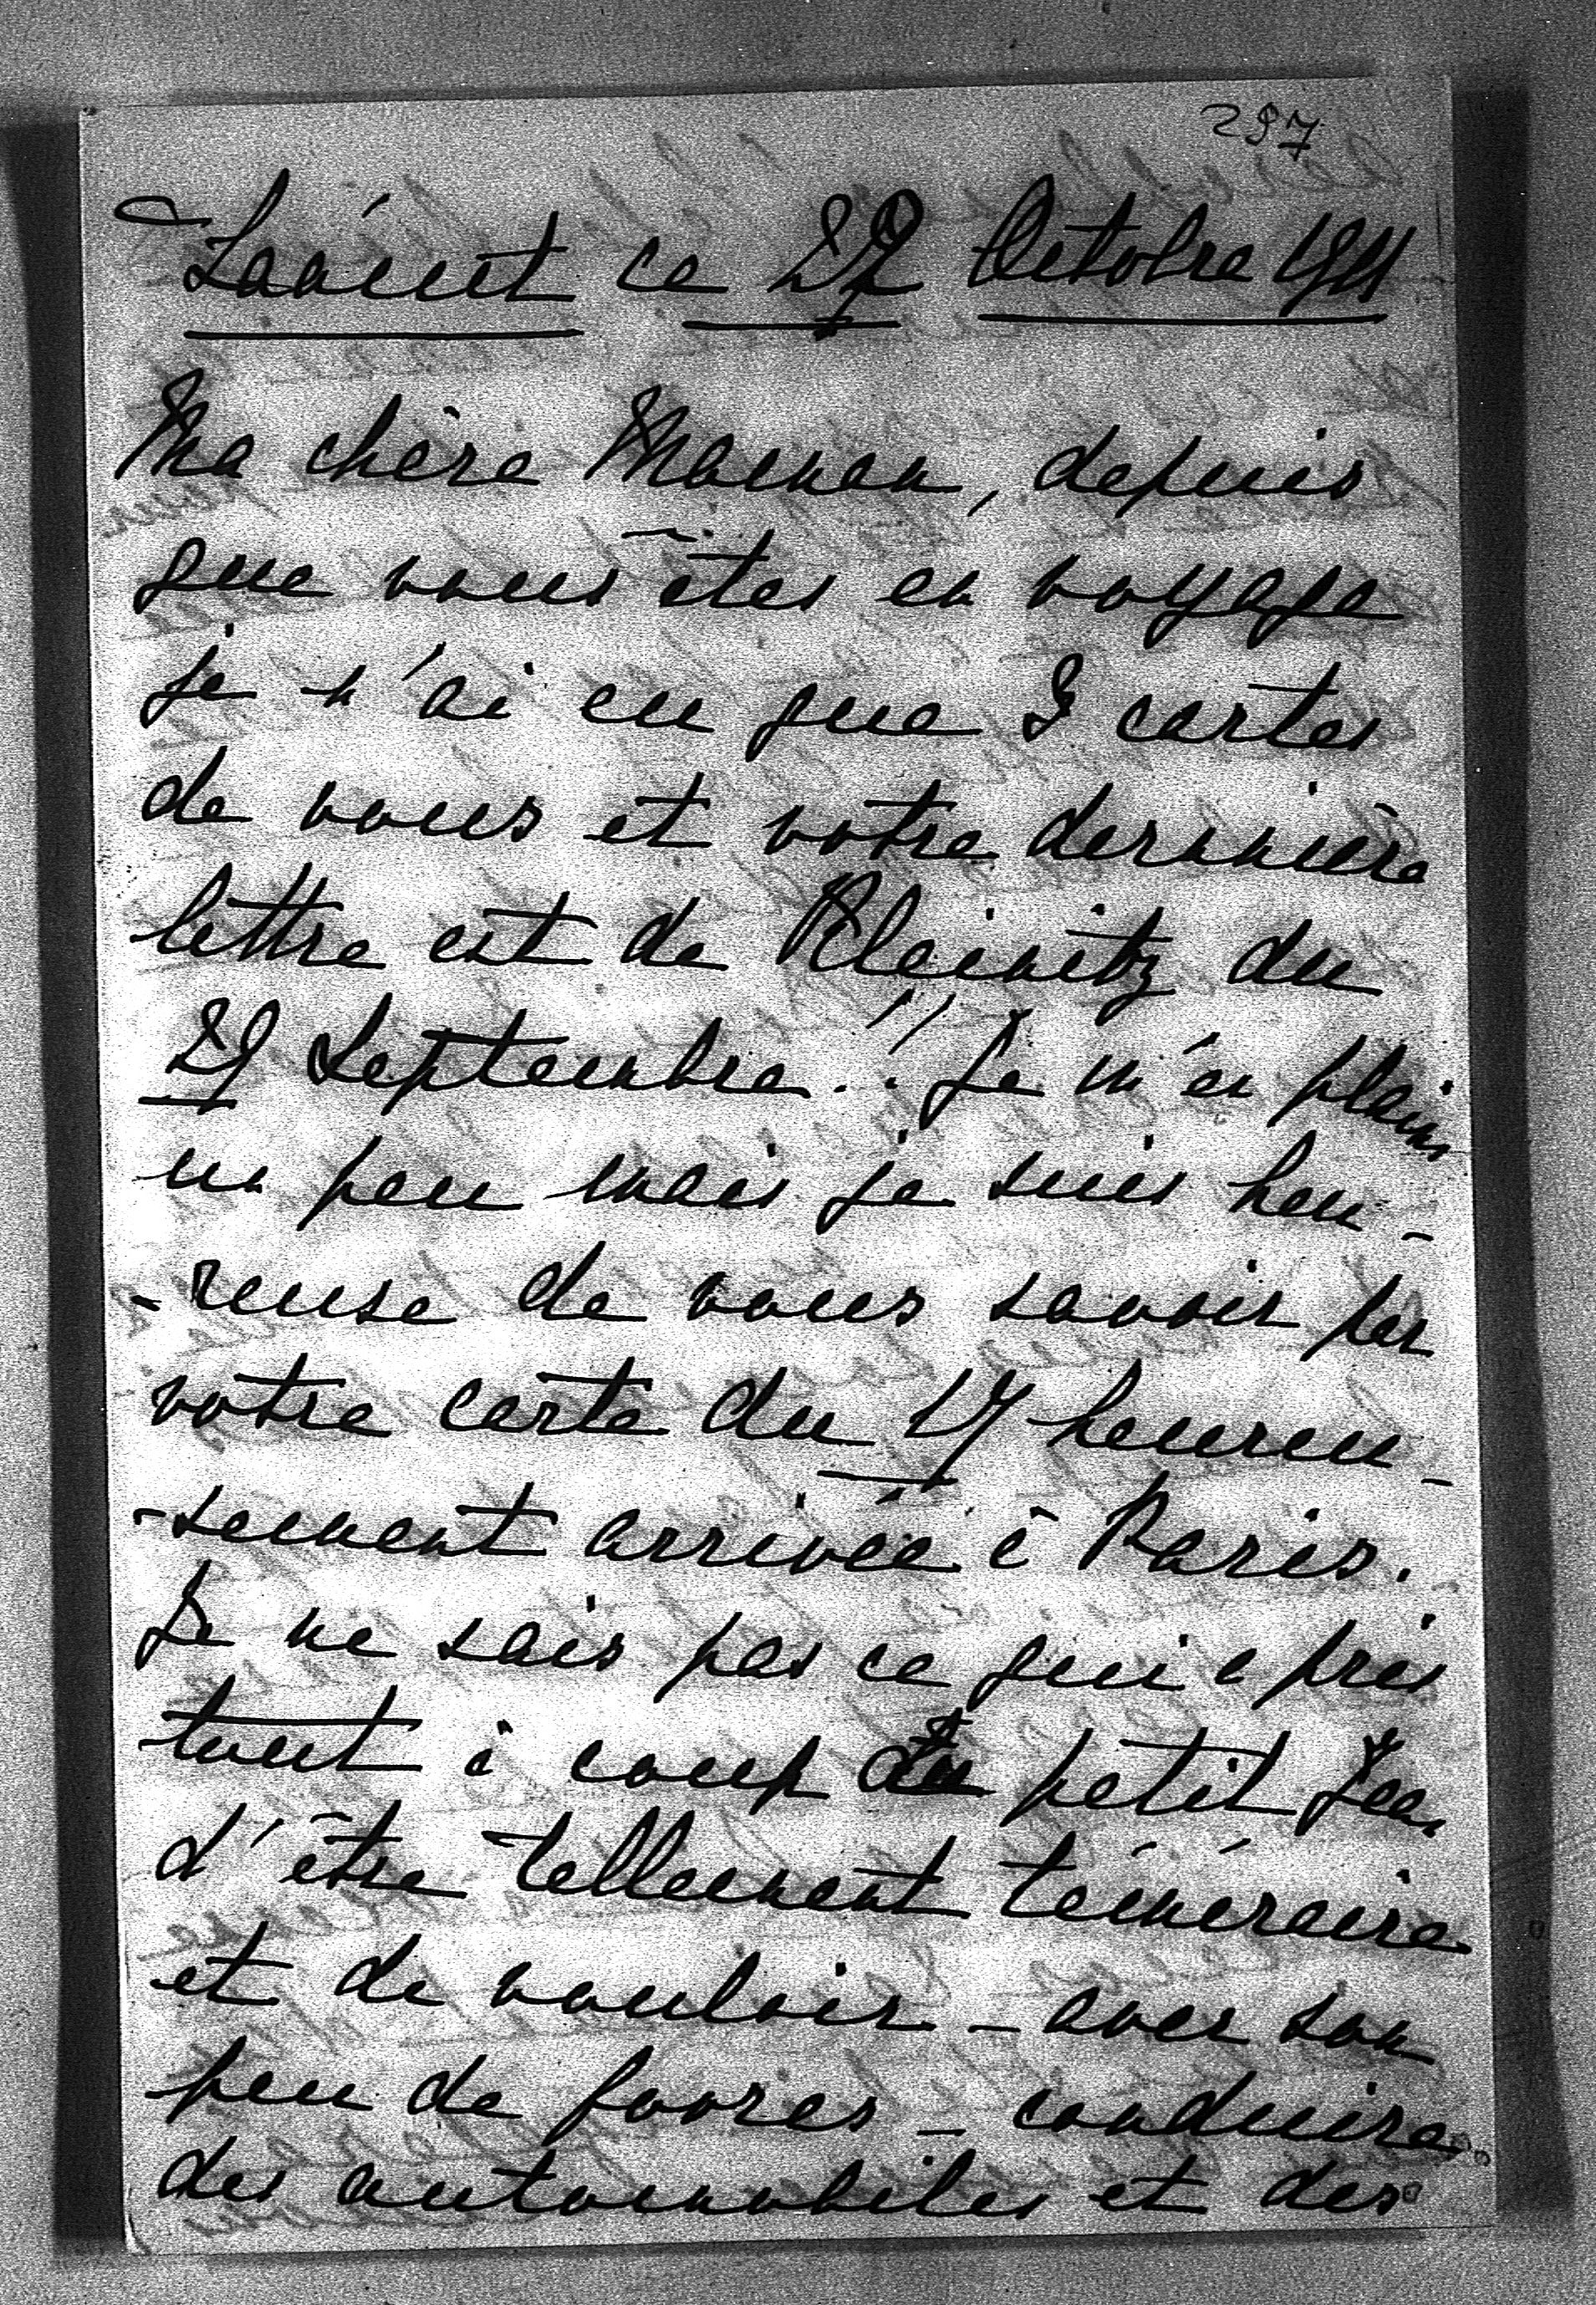 297
Lancut ce 22 Octobre 1911
Ma chère Maman, depuis
que vous êtes en voyage
je n'ai eu que 3 cartes
de vous et votre dernière
lettre est de Kleinitz du
29 Septembre!! Je m'en plains
un peu mais je suis heu-
-reuse de vous savoir par
votre carte du 17 heureu-
-sement arrivée à Paris.
Je ne sais pas ce qui a pris
tout à coup au petit Jean
d'être tellement téméraire
et de vouloir – avec son
peu de forces – conduire
des automobiles et des